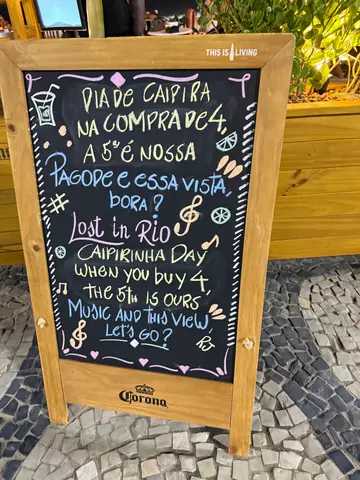 THIS IS LIVING
DIA DE CAIPIRA
NA COMPRA DE 4,
A 5ª É NOSSA
PAGODE E ESSA VISTA,
BORA?
Lost in Rio
CAIPIRINHA DAY
WHEN YOU BUY 4,
THE 5TH IS OURS
MUSIC AND THIS VIEW,
LET'S GO?
Corona